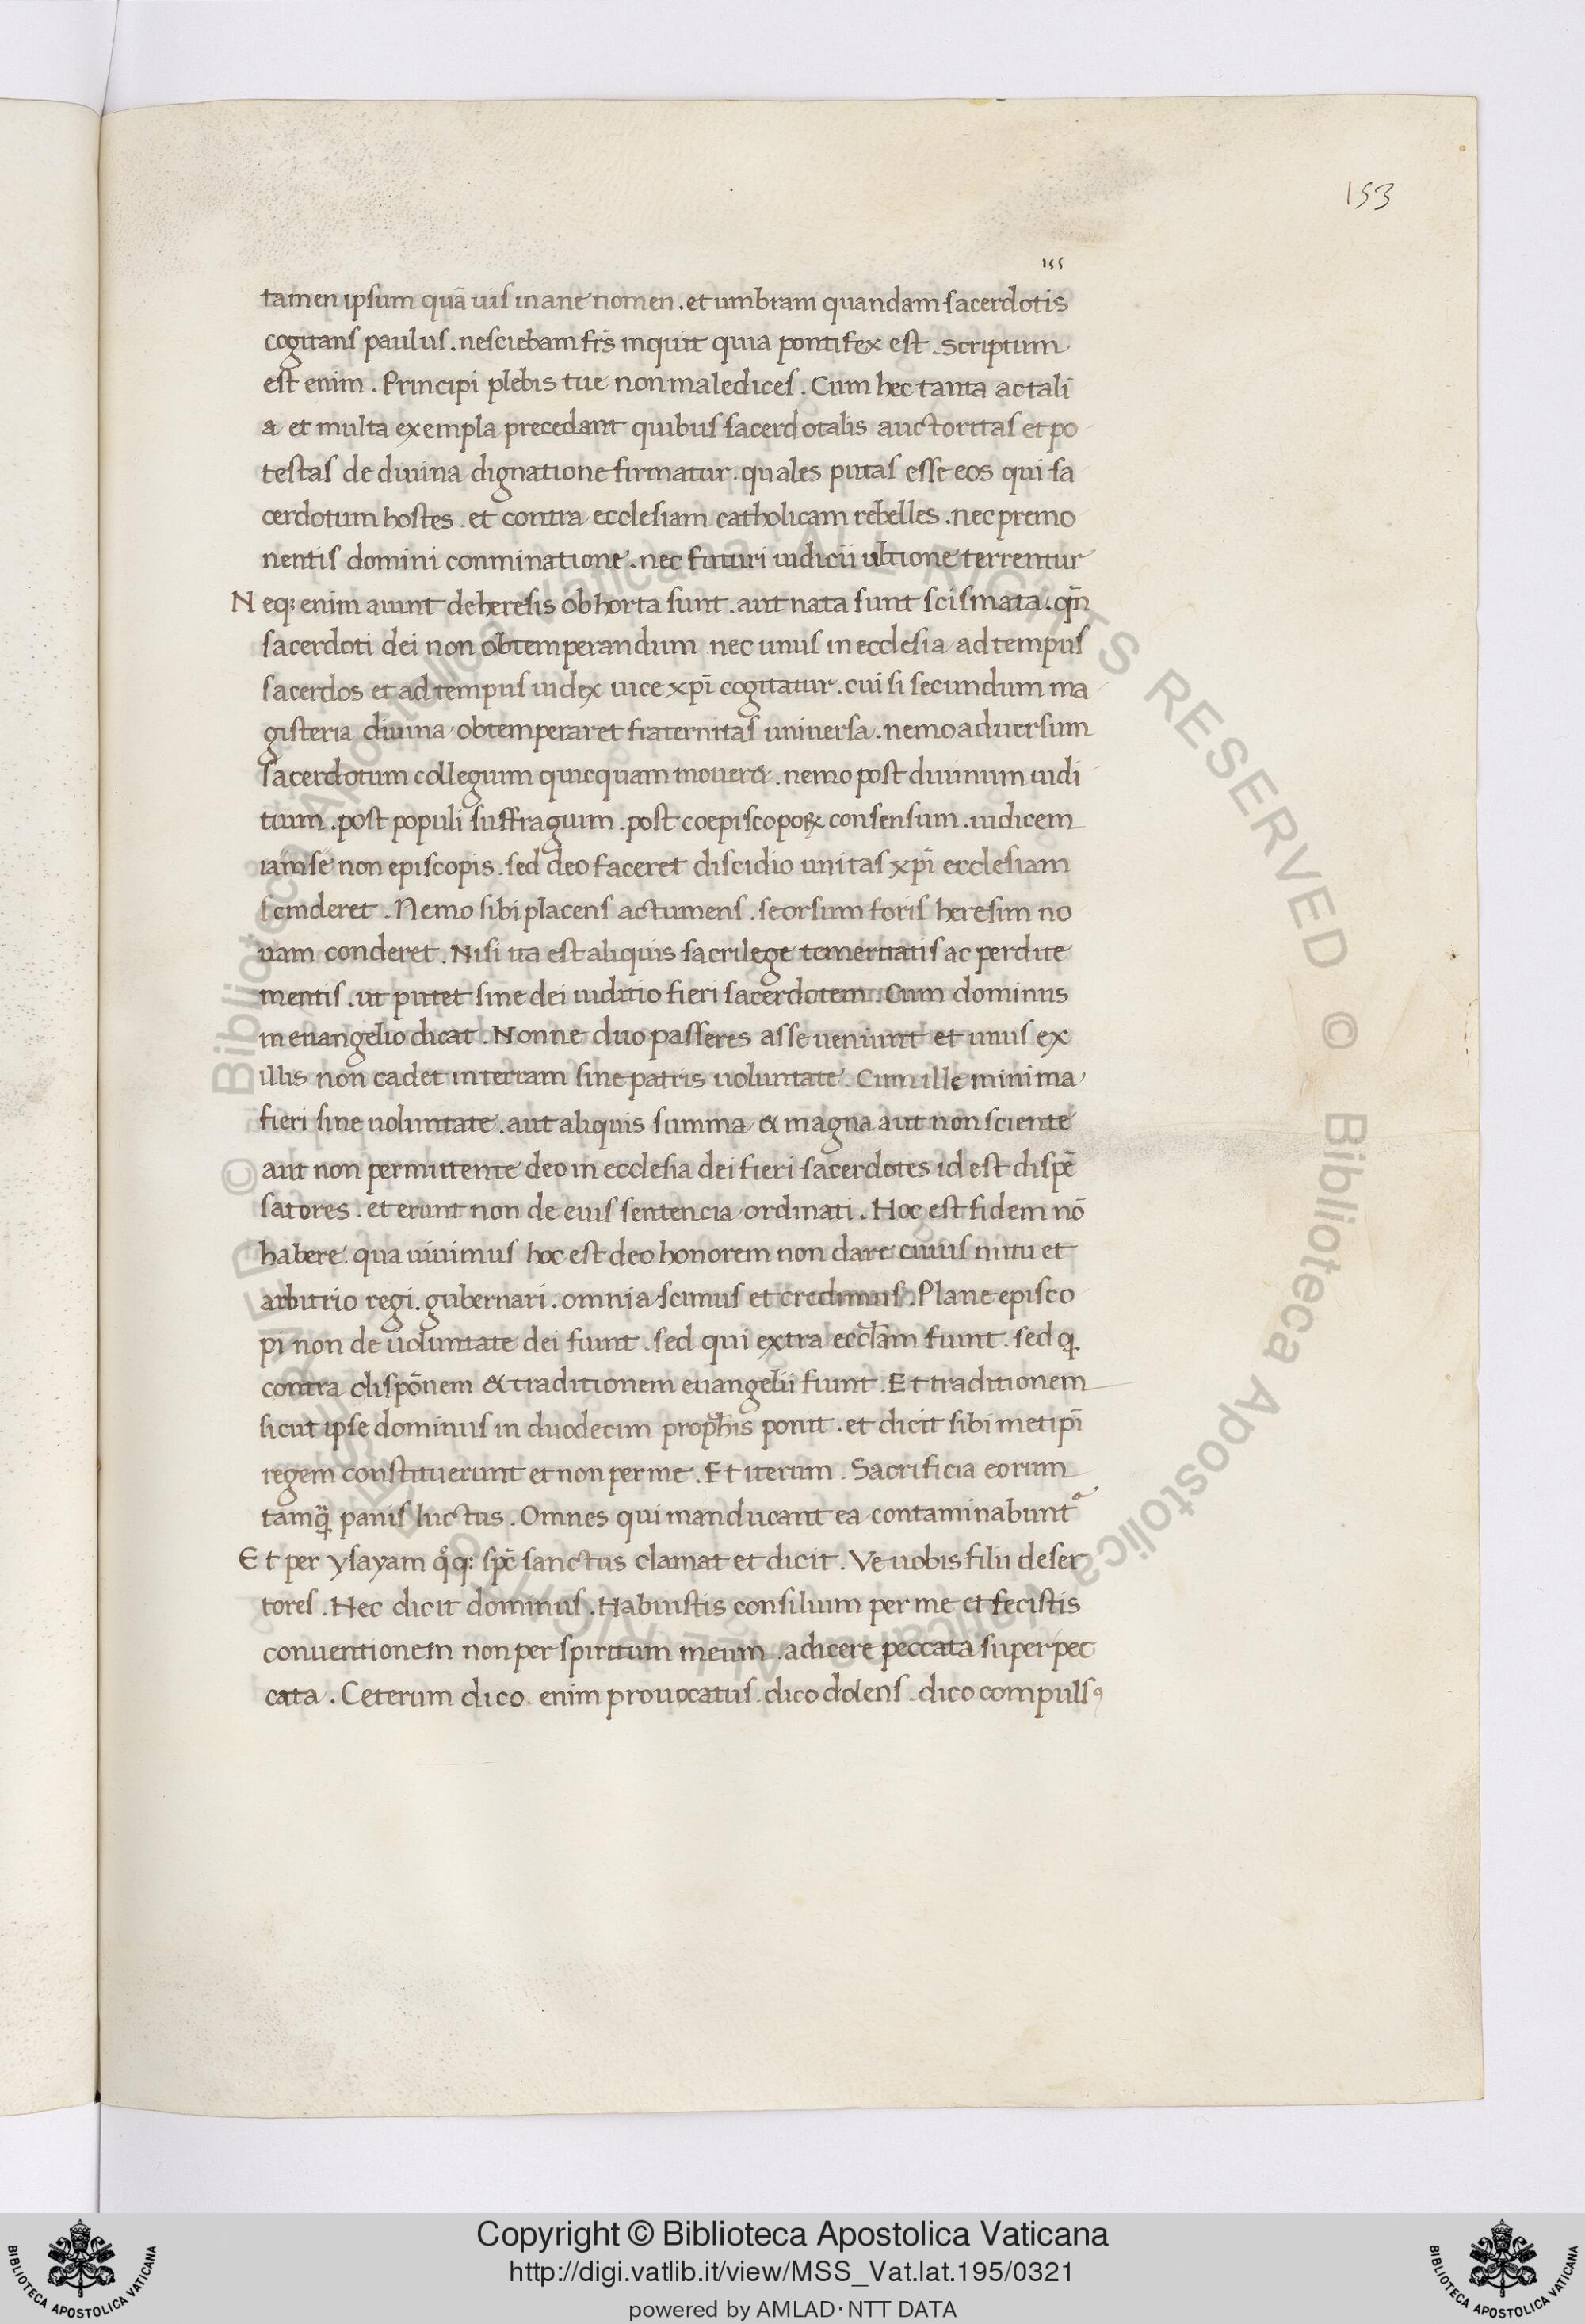 153
155
tamen ipsum quā uis inane nomen . et umbram quandam sacerdotis
cogitans paulus . nesciebam frs̄ inquit quia pontifex est . scriptum
est enim . Principi plebis tue non maledices . Cum hec tanta ac tali
a et multa exempla precedant quibus sacerdotalis auctoritas et po
testas de diuina dignatione firmatur . quales putas esse eos qui sa
cerdotum hostes . et contra ecclesiam catholicam rebelles . nec premo
nentis domini conminatione . nec futuri iudicii ultione terrentur
Neq; enim aiunt de heresis obhorta sunt . aut nata sunt scismata . qn̄
sacerdoti dei non obtemperandum nec unus in ecclesia ad tempus
sacerdos et ad tempus iudex uice xpī cogitatur . cui si secundum ma
gisteria diuina obtemperaret fraternitas uniuersa . nemo aduersum
sacerdotum collegium quicquam mouer& . nemo post diuinum iudi
tium . post populi suffragium . post coepiscopoꝝ consensum . iudicem
iam se non episcopis . sed deo faceret discidio unitas xpī ecclesiam
scinderet . Nemo sibi placens ac tumens . seorsum foris heresim no
uam conderet . Nisi ita est aliquis sacrilege temeritatis ac perdite
mentis . ut putet sine dei iuditio fieri sacerdotem . Cum dominus
in euangelio dicat . Nonne duo passeres asse ueniunt et unus ex
illis non cadet in terram sine patris uoluntate . Cum ille minima
fieri sine uoluntate . aut aliquis summa & magna aut non sciente
aut non permittente deo in ecclesia dei fieri sacerdotes id est dispē
satores . et erunt non de eius sentencia ordinati . Hoc est fidem nō
habere . qua uiuimus hoc est deo honorem non dare cuius nutu et
arbitrio regi . gubernari . omnia scimus et credimus . Plane episco
pi non de uoluntate dei fiunt . sed qui extra eccl̄am fiunt . sed q
contra dispōnem & traditionem euangelii fiunt . Et traditionem
sicut ipse dominus in duodecim proph̄is ponit . et dicit sibi metipī
regem constituerunt et non per me . Et iterum . Sacrificia eorum
tamq̄ panis luctus . Omnes qui manducant ea contaminabunt
Et per ysayam qͦq; spc̄ sanctus clamat et dicit . Ve uobis filii deser
tores . Hec dicit dominus . Habuistis consilium per me et fecistis
conuentionem non per spiritum meum . adicere peccata super pec
cata . Ceterum dico enim prouocatus . dico dolens . dico compulsꝰ
© Biblioteca Apostolica Vaticana ALL RIGHTS RESERVED © Biblioteca Apostolica Vaticana ALL RIGHTS RESERVED
Copyright © Biblioteca Apostolica Vaticana
http://digi.vatlib.it/view/MSS_Vat.lat.195/0321
powered by AMLAD · NTT DATA
BIBLIOTECA APOSTOLICA VATICANA
BIBLIOTECA APOSTOLICA VATICANA